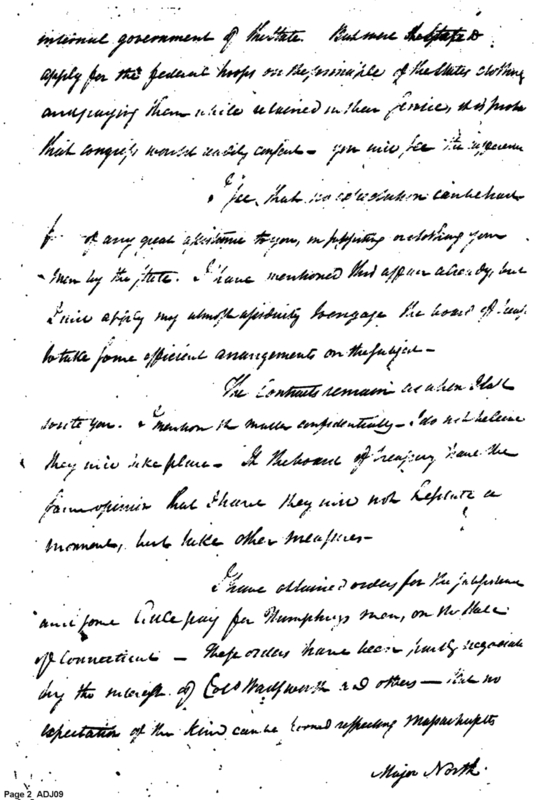 internal government of the State. But were the State to
apply for the federal troops on the principle of the States clothing
and paying them while retained in their service, it is
that congress would readily consent – you will see the
I fee, that no can be had
of any great assistance to you, in or clothing your
men by the State. I have mentioned this affair already, but
I will apply my utmost assiduity to engage the board of
to take some efficient arrangements on the subject –
The Contracts remain as when I last
wrote you. I mention the matter confidentially – I do not believe
they will take place – If the board of treasury have the
same opinion that I have they will not hesitate a
moment, but take other measures –
I have obtained orders for the subsistence
and some little pay for Humphrys men, on the State
of Connecticut – These orders have been negociated
by the interest of Colo Wadsworth and others – But no
expectation of the kind can be formed respecting Massachusetts
Major North.
Page 2 ADJ09